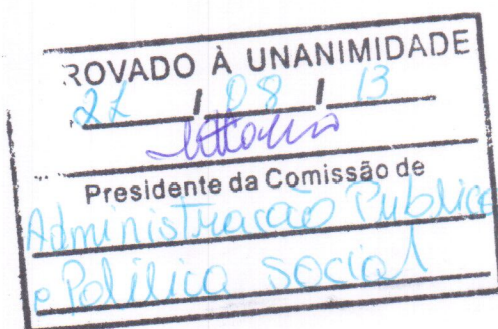 ROVADO À UNANIMIDADE
27 / 08 / 13
Presidente da Comissão de
Administração Pública
e Política social